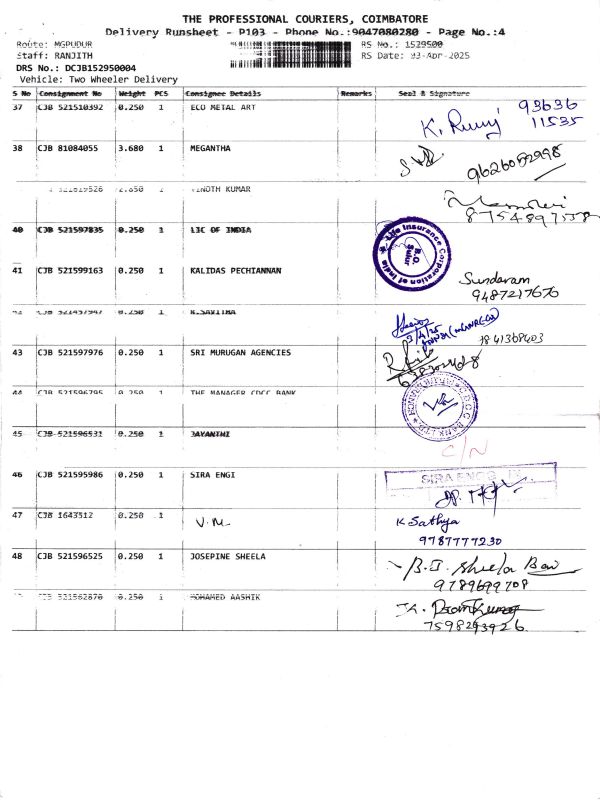 THE PROFESSIONAL COURIERS, COIMBATORE
Delivery Runsheet - P103 - Phone No.:9047080280 - Page No.:4
Route: MGPUDUR RS No.: 1529500
Staff: RANJITH RS Date: 03-Apr-2025
DRS No.: DCJB152950004
Vehicle: Two Wheeler Delivery
S No Consignment No Weight PCS Consignee Details Remarks Seal & Signature
37 CJB 521510392 0.250 1 ECO METAL ART 93636
11535
38 CJB 81084055 3.680 1 MEGANTHA
9626082998
VINOTH KUMAR
8754897558
40 CJB 521597835 0.250 1 LIC OF INDIA Life Insurance Corporation of India
B.O.
Sulur
41 CJB 521599163 0.250 1 KALIDAS PECHIANNAN Sundaram
9487217676
42 CJB 521457947 0.250 1 K.SAVITHA
3/4/25
43 CJB 521597976 0.250 1 SRI MURUGAN AGENCIES
44 CJB 521596795 0.250 1 THE MANAGER CDCC BANK
45 CJB 521596531 0.250 1 JAYANTHI C/N
46 CJB 521595986 0.250 1 SIRA ENGI SIRA ENGG
47 CJB 1643512 0.250 1 V.M K Sathya
9787777230
48 CJB 521596525 0.250 1 JOSEPINE SHEELA B.J. Sheela Bai
9789699708
CJB 521562870 0.250 1 MOHAMED AASHIK
7598293926